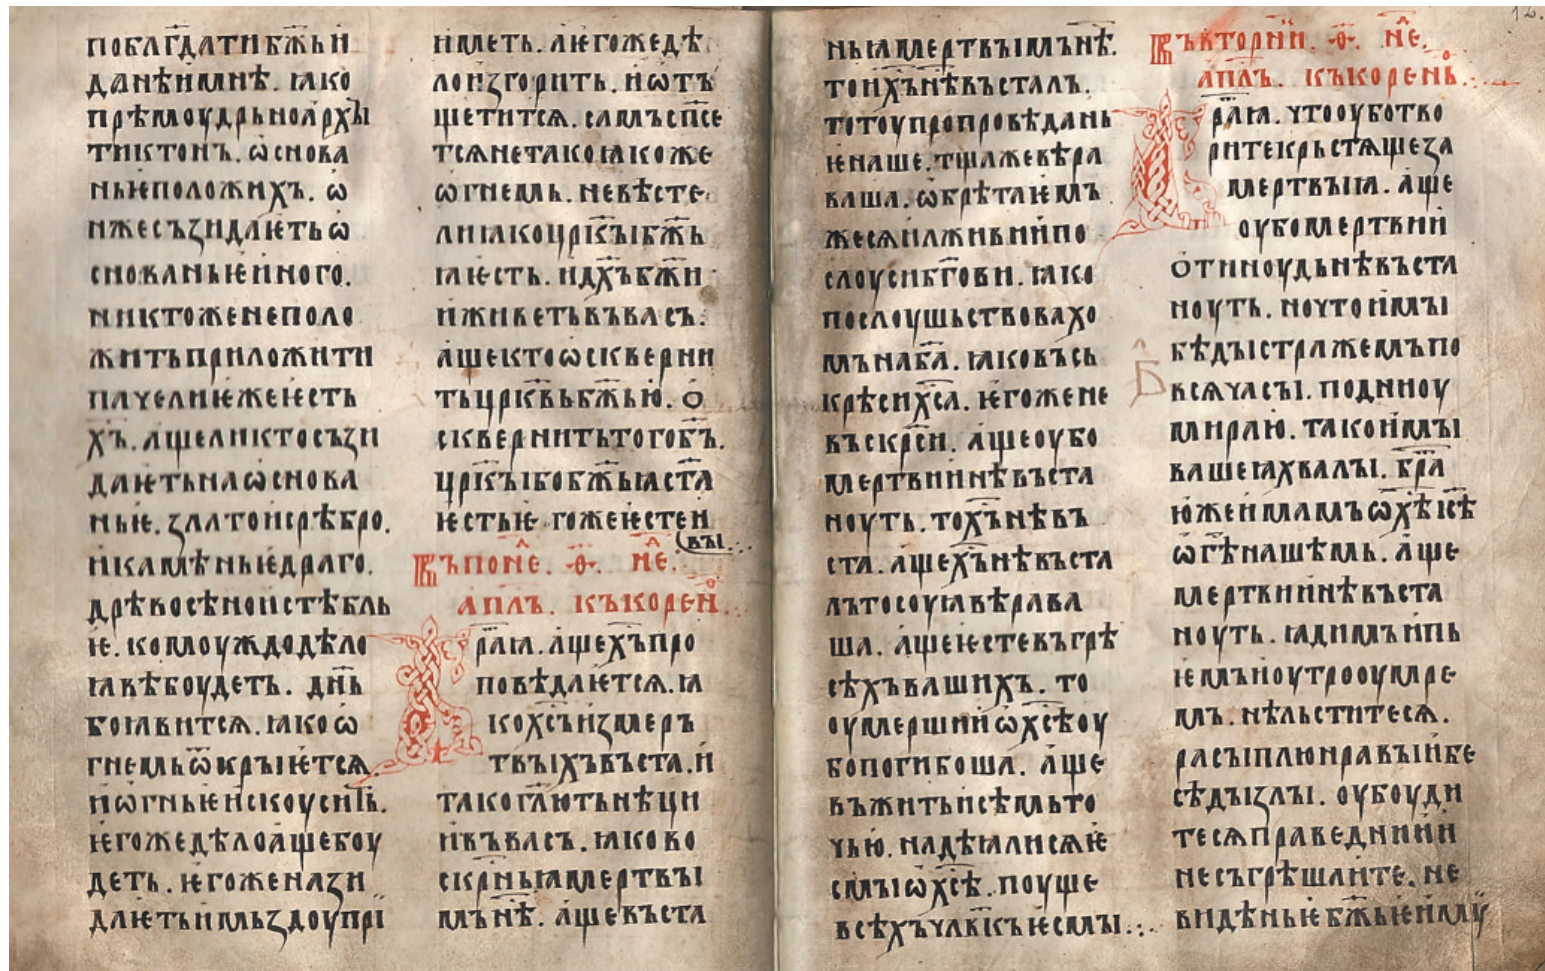 по блг҃дати бж҃ьи
данѣи мнѣ. ꙗко
прѣмоудрьно архы
тиктонъ. ѡснова
ньѥ положихъ. ѡ
нже съзидаѥть ѡ
снованьѥ иного.
никтоже не поло
жить приложити
паче лиѥже ѥсть
хъ҃. аще ли кто съзи
даѥть на ѡснова
ньѥ. злато и срѣбро.
и камѣньѥ драго.
дрѣво сѣно и стѣбль
ѥ. комоуждо дѣло
ꙗвѣ боудеть. дн҃ь
бо ꙗвитсѧ. ꙗко ѡ
гнемь ѿкрыѥтсѧ.
и ѡгньѥ искоуситъ.
ѥгоже дѣло аще боу
деть. ѥгоже нази
даѥть и мьздоу прї
иметь. а ѥгоже дѣ
ло изгорить. и ѡтъ
щетитсѧ. самъ сп҃се
тсѧ не тако ꙗкоже
ѡгнемь. не вѣсте
ли ꙗко цр҃кꙑ бж҃ь
ꙗ ѥсть. и дх҃ъ бж҃и
и живеть въ васъ.
аще кто ѡскверни
ть цр҃квь бж҃ью. ѻ
сквернить того бъ҃.
цр҃кꙑ бо бж҃ьꙗ ст҃а
ѥсть ѥгоже ѥсте и
вꙑ.
Въ поне. ѳ. не.
апл҃ъ. къ корен.
Бра҃ꙗ. аще хъ҃ про
повѣдаѥтсѧ. ꙗ
ко хс҃ъ из мер
твꙑхъ въста. и
тако гл҃ють нѣци
и въ васъ. ꙗко во
скр҃ньꙗ мертвꙑ
мъ нѣ҃. аще въста
ньꙗ мертвꙑмъ нѣ҃.
то и хъ҃ нѣ въсталъ.
то тоу пропровѣдань
ѥ наше. тща же вѣра
ваша. ѡбрѣтаѥмъ
же сѧ и лживии по
слоуси бг҃ови. ꙗко
послоушьствовахо
мъ на ба҃. ꙗко въсь
крѣси хс҃а. ѥгоже не
въскрс҃и. аще оубо
мертвии нѣ въста
ноуть. то хъ҃ нѣ въ
ста. аще хъ҃ нѣ въста
лъ то соуꙗ вѣра ва
ша. аще ѥсте въ грѣ
сѣхъ вашихъ. то
оумершии ѡ хс҃ѣ оу
бо погибоша. аще
въ житьи сѣмь то
чью. надѣꙗли сѧ ѥ
смꙑ ѡ хс҃ѣ. поуще
всѣхъ чл҃къ ѥсмꙑ.
Въ вторнї. ѳ. не.
апл҃ъ. къ корено.
Бра҃ꙗ. что оубо тво
рите крьстѧще за
мертвꙑꙗ. аще
оубо мертвии
ѻтиноудь нѣ въста
ноуть. но что и мꙑ
бѣдꙑ стражемъ по
всѧ часꙑ. по дн҃и оу
мираю. тако и мꙑ
вашеꙗ хвалꙑ. бра҃
юже имамъ ѡ хѣ҃ ісѣ҃
ѡ гѣ҃ нашѣмь. аще
мертвии нѣ въста
ноуть. ꙗдимъ и пь
ѥмъ и оутро оумре
мъ. нѣ льститесѧ.
расꙑплю нравꙑ и бе
сѣдꙑ злꙑ. оубоуди
тесѧ праведнии и
не съгрѣшаите. не
видѣньѥ бж҃ьѥ имꙋ